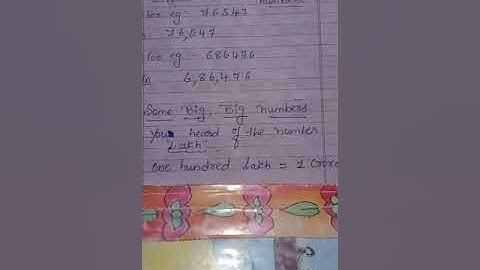 for eg:- 76547
76,547
for eg - 686476
6,86,476
Some Big, Big numberd
You heerd of the number
"Lakh"
one hundred lakh = 1 crore